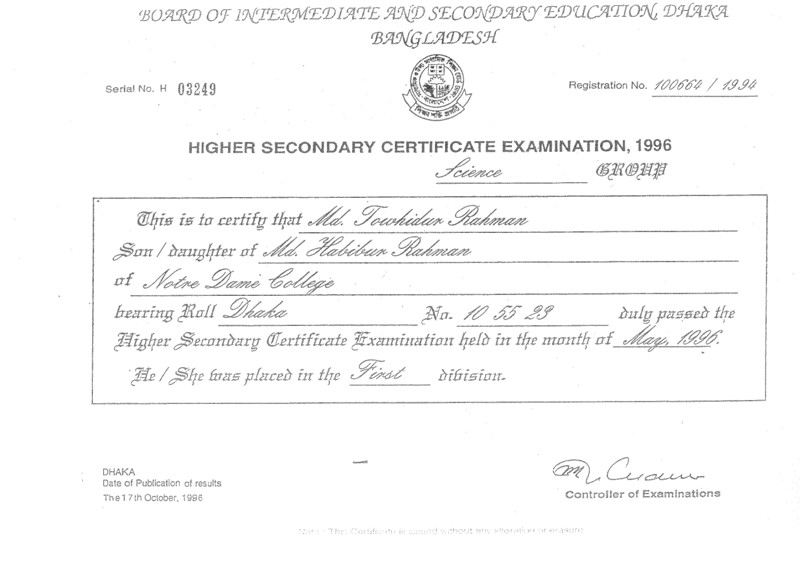 BOARD OF INTERMEDIATE AND SECONDARY EDUCATION, DHAKA
BANGLADESH
Serial No. H 03249
Registration No. 100664 / 1994
HIGHER SECONDARY CERTIFICATE EXAMINATION, 1996
Science GROUP
This is to certify that Md. Towhidur Rahman
Son / daughter of Md. Habibur Rahman
of Notre Dame College
bearing Roll Dhaka No. 10 55 23 duly passed the
Higher Secondary Certificate Examination held in the month of May, 1996.
He / She was placed in the First division.
DHAKA
Date of Publication of results
The 17th October, 1996
Controller of Examinations
Note : This Certificate is issued without any alteration or erasure